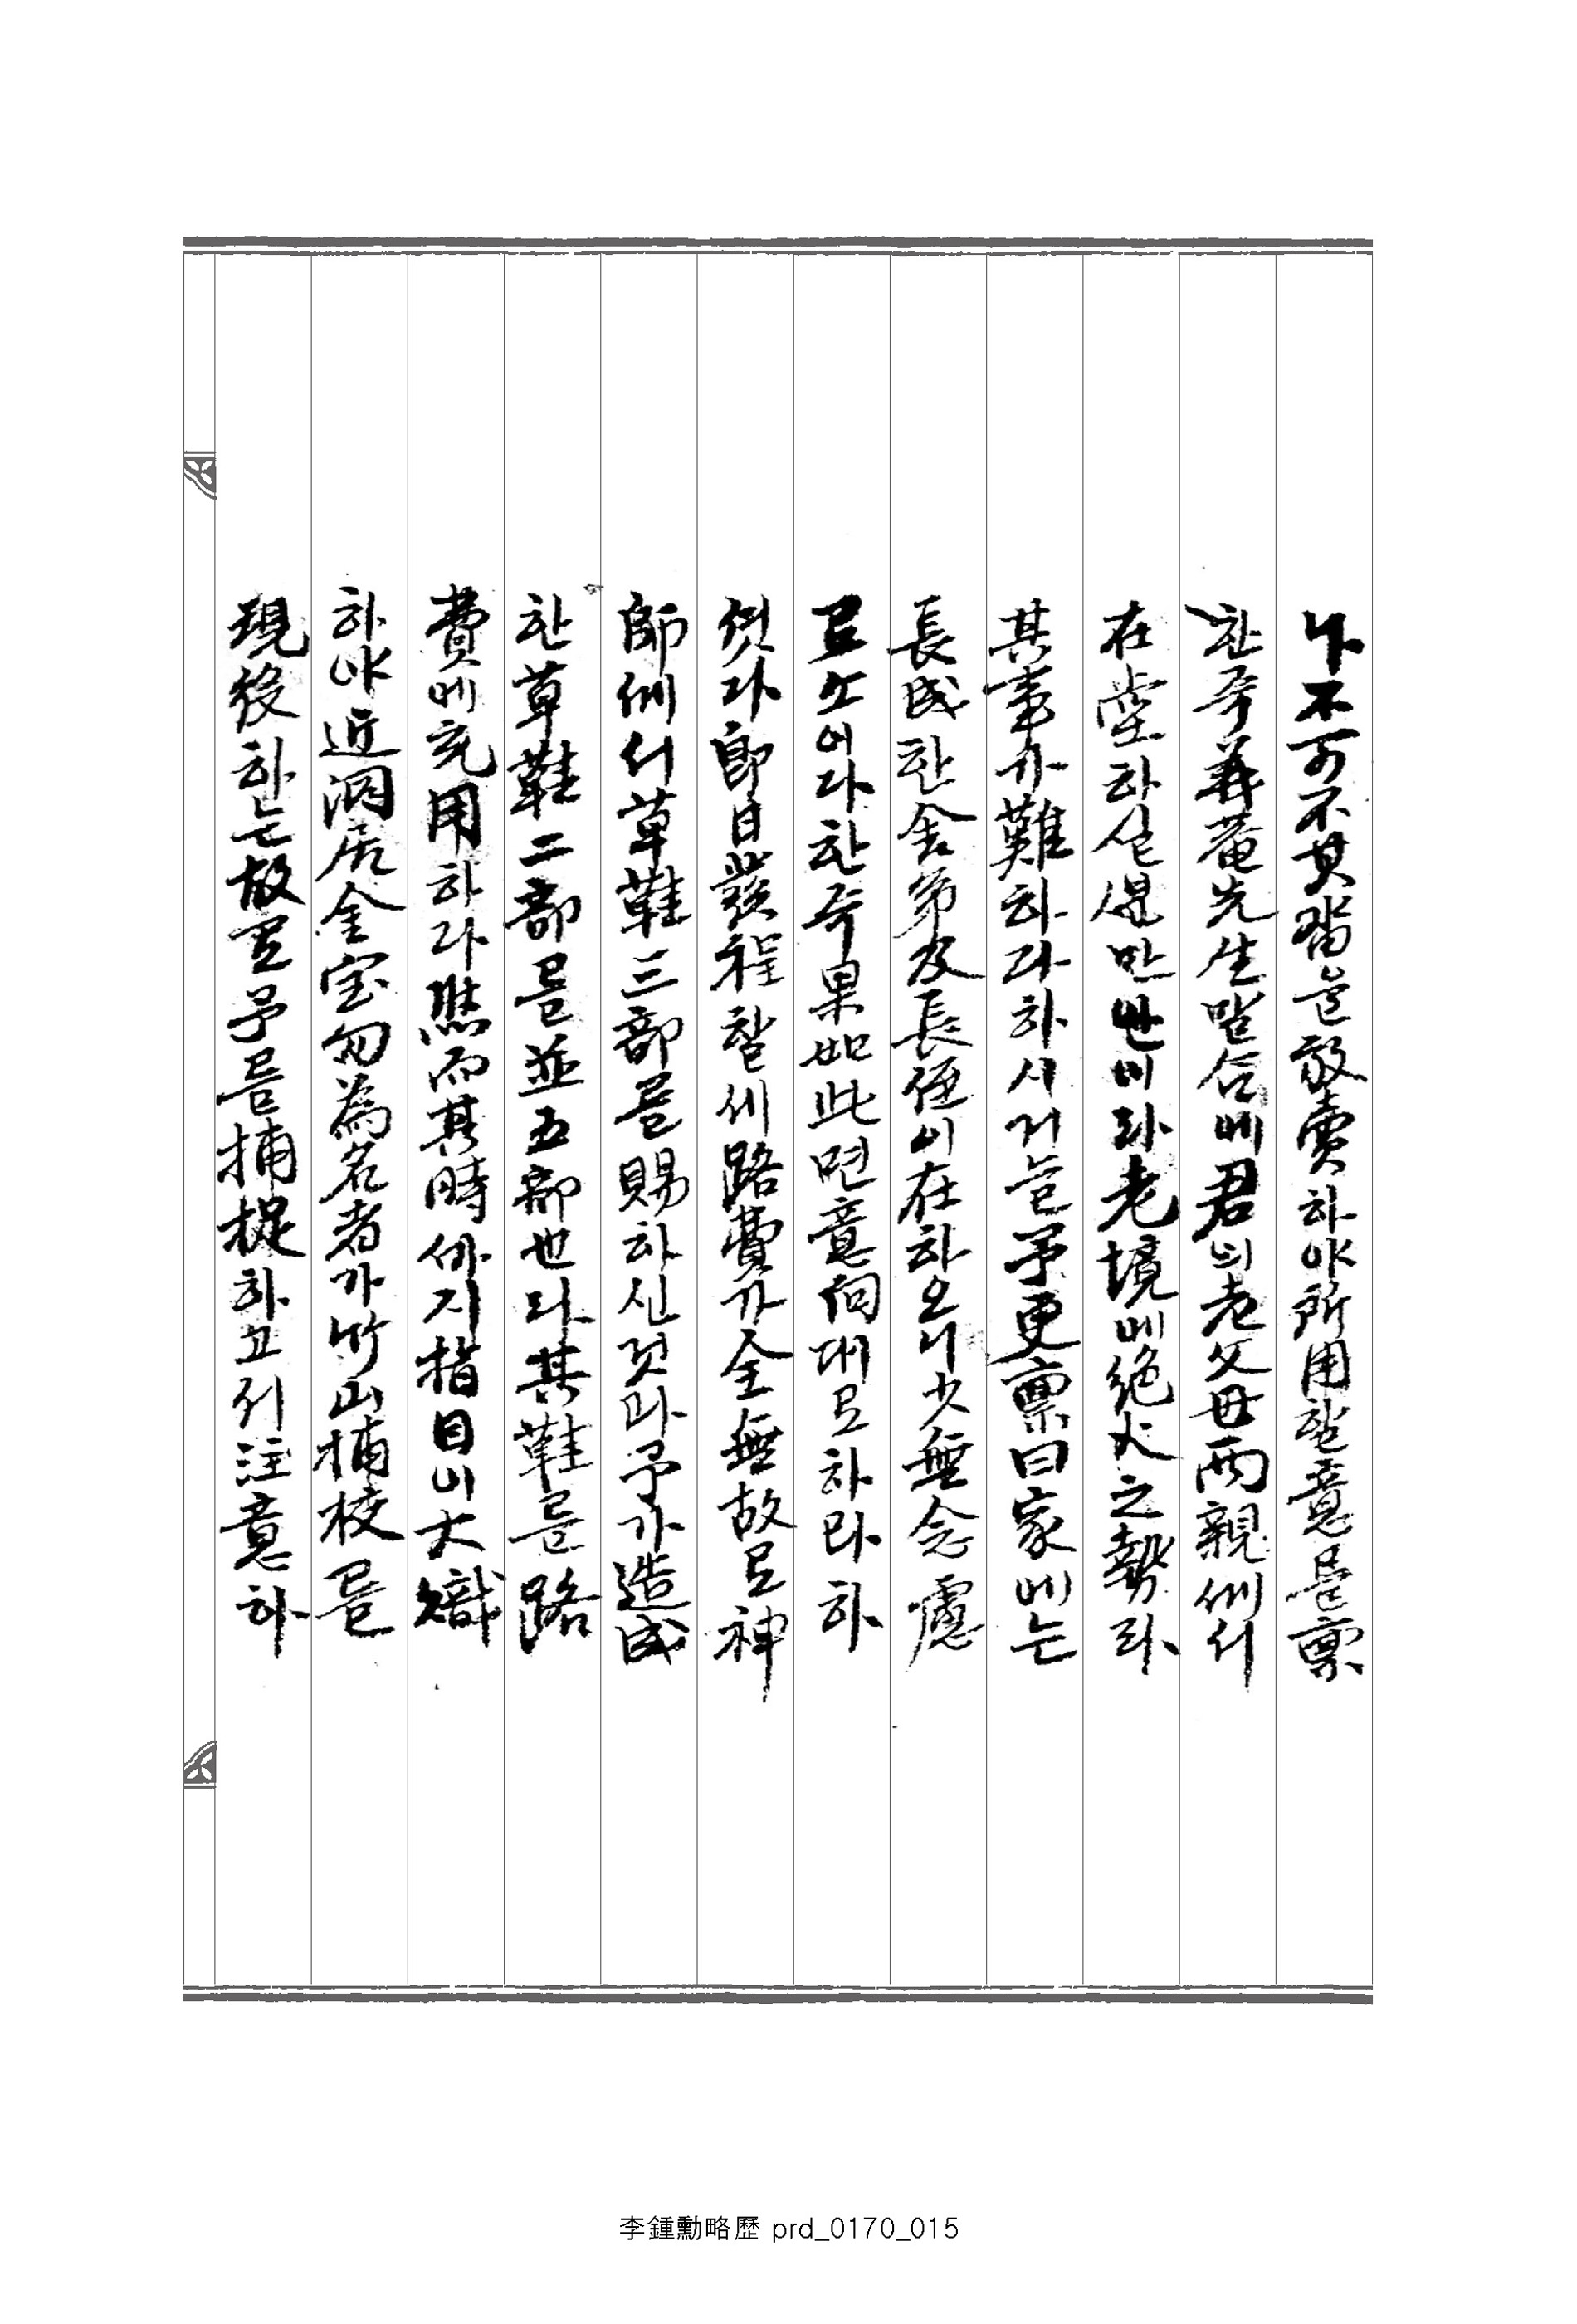 니 不可不 其畓을 放賣하야 所用할 意로 稟
한 즉 義菴先生 말合에 君의 老父母 兩親께서
在堂하실 뿐만 안이라 老境에 絶火之勢라
其事가 難하다 하시거늘 予 更稟曰 家에는
長成한 舍弟及長侄이 在하오니 少無念慮
로소이다 한 즉 果如此면 意向대로 하라 하
엿다 卽日 發程할세 路費가 全無故로 神
師께서 草鞋 三部를 賜하신 것과 予가 造成
한 草鞋 二部를 並 五部也라 其鞋를 路
費에 充用하다 然而 其時 까지 指目이 大熾
하야 近洞居 金宝勿 爲名者가 竹山捕校를
現後하는 故로 予를 捕捉하고져 注意하
李鍾勳略歷 prd_0170_015